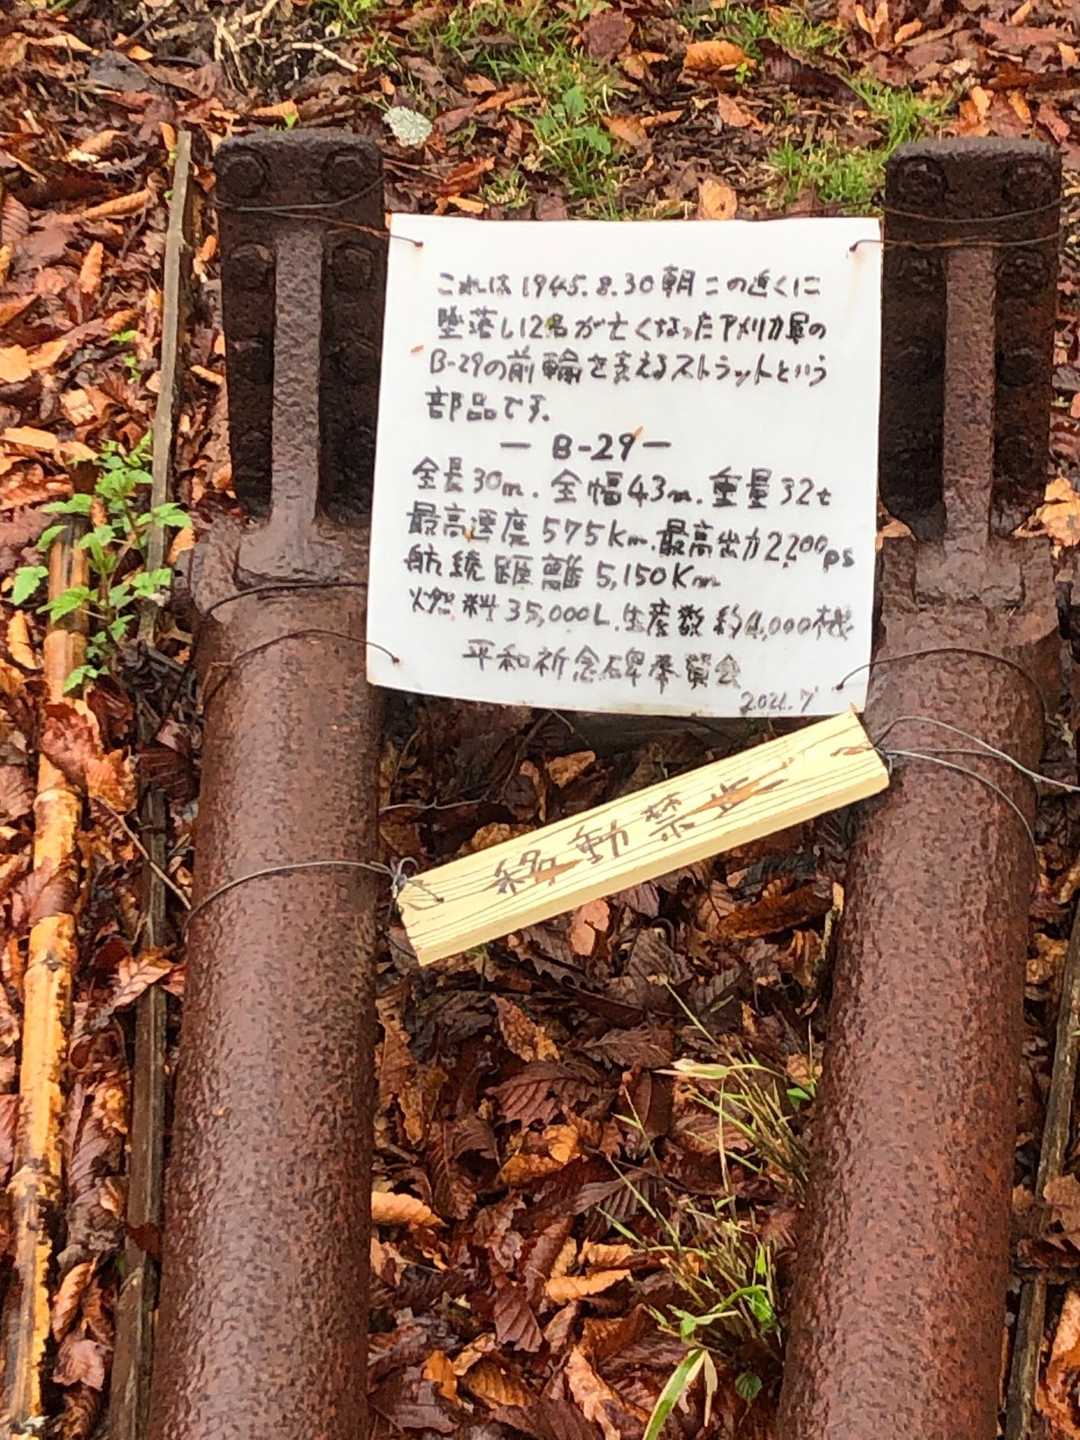 これは1945.8.30朝この近くに
墜落し12名が亡くなったアメリカ軍の
B-29の前輪を支えるストラットという
部品です。
― B-29 ―
全長30m. 全幅43m. 重量32t
最高速度575Km. 最高出力2200ps
航続距離5,150Km
燃料35,000L. 生産数約4,000機
平和祈念碑委員会
移動禁止